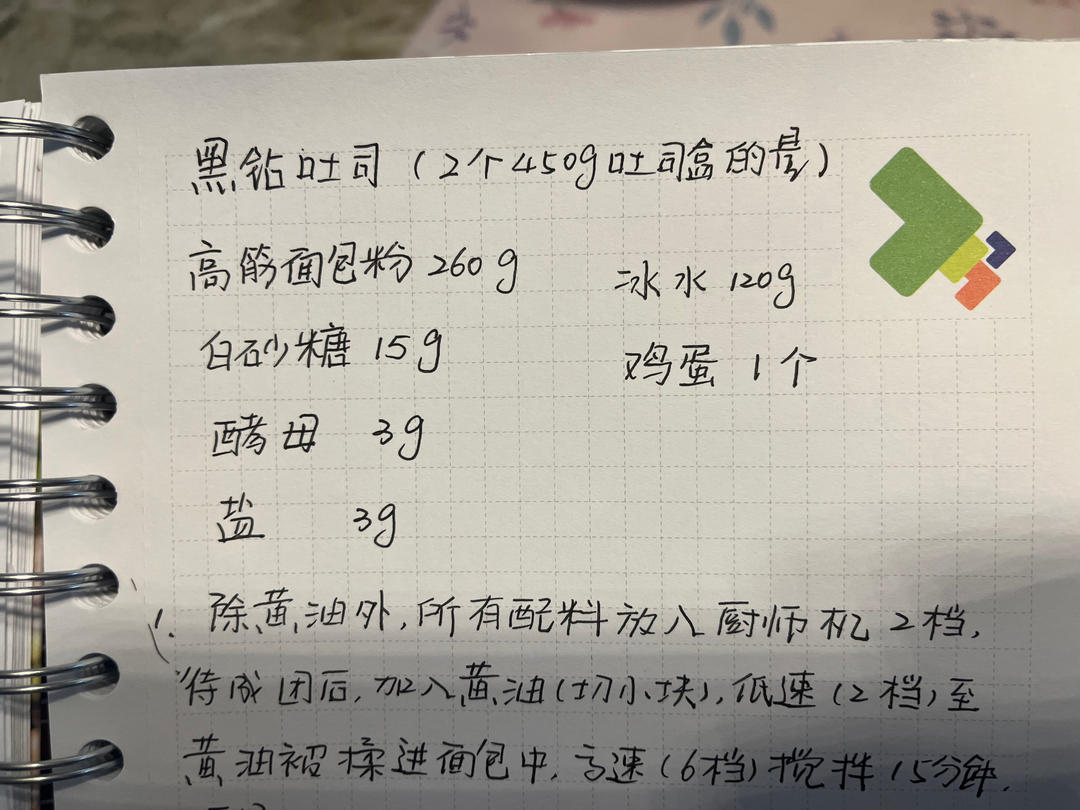 黑钻吐司（2个450g吐司盒的量）
高筋面包粉 260g 冰水 120g
白砂糖 15g 鸡蛋 1个
酵母 3g
盐 3g
1. 除黄油外，所有配料放入厨师机2档，
待成团后，加入黄油（切小块），低速（2档）至
黄油被揉进面包中，高速（6档）搅拌15分钟，